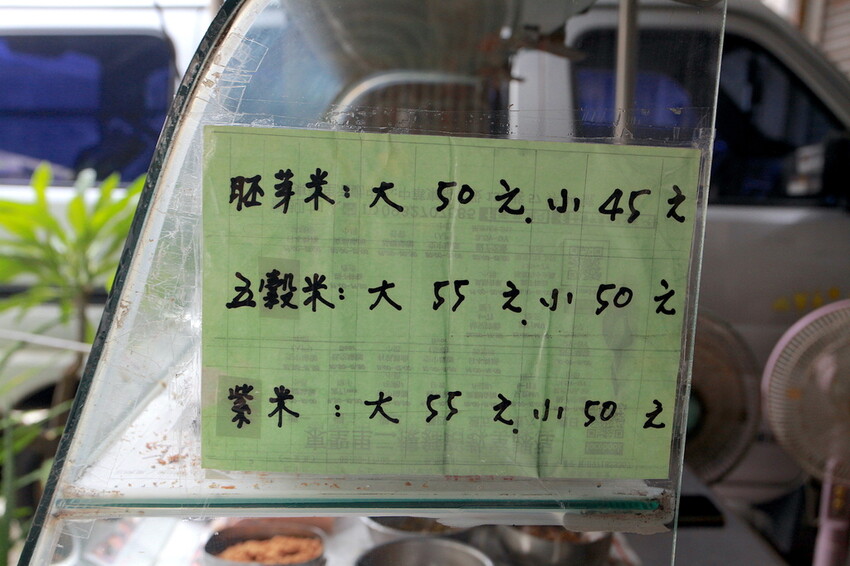 胚芽米：大 50 元.小 45 元
五穀米：大 55 元.小 50 元
紫米：大 55 元.小 50 元